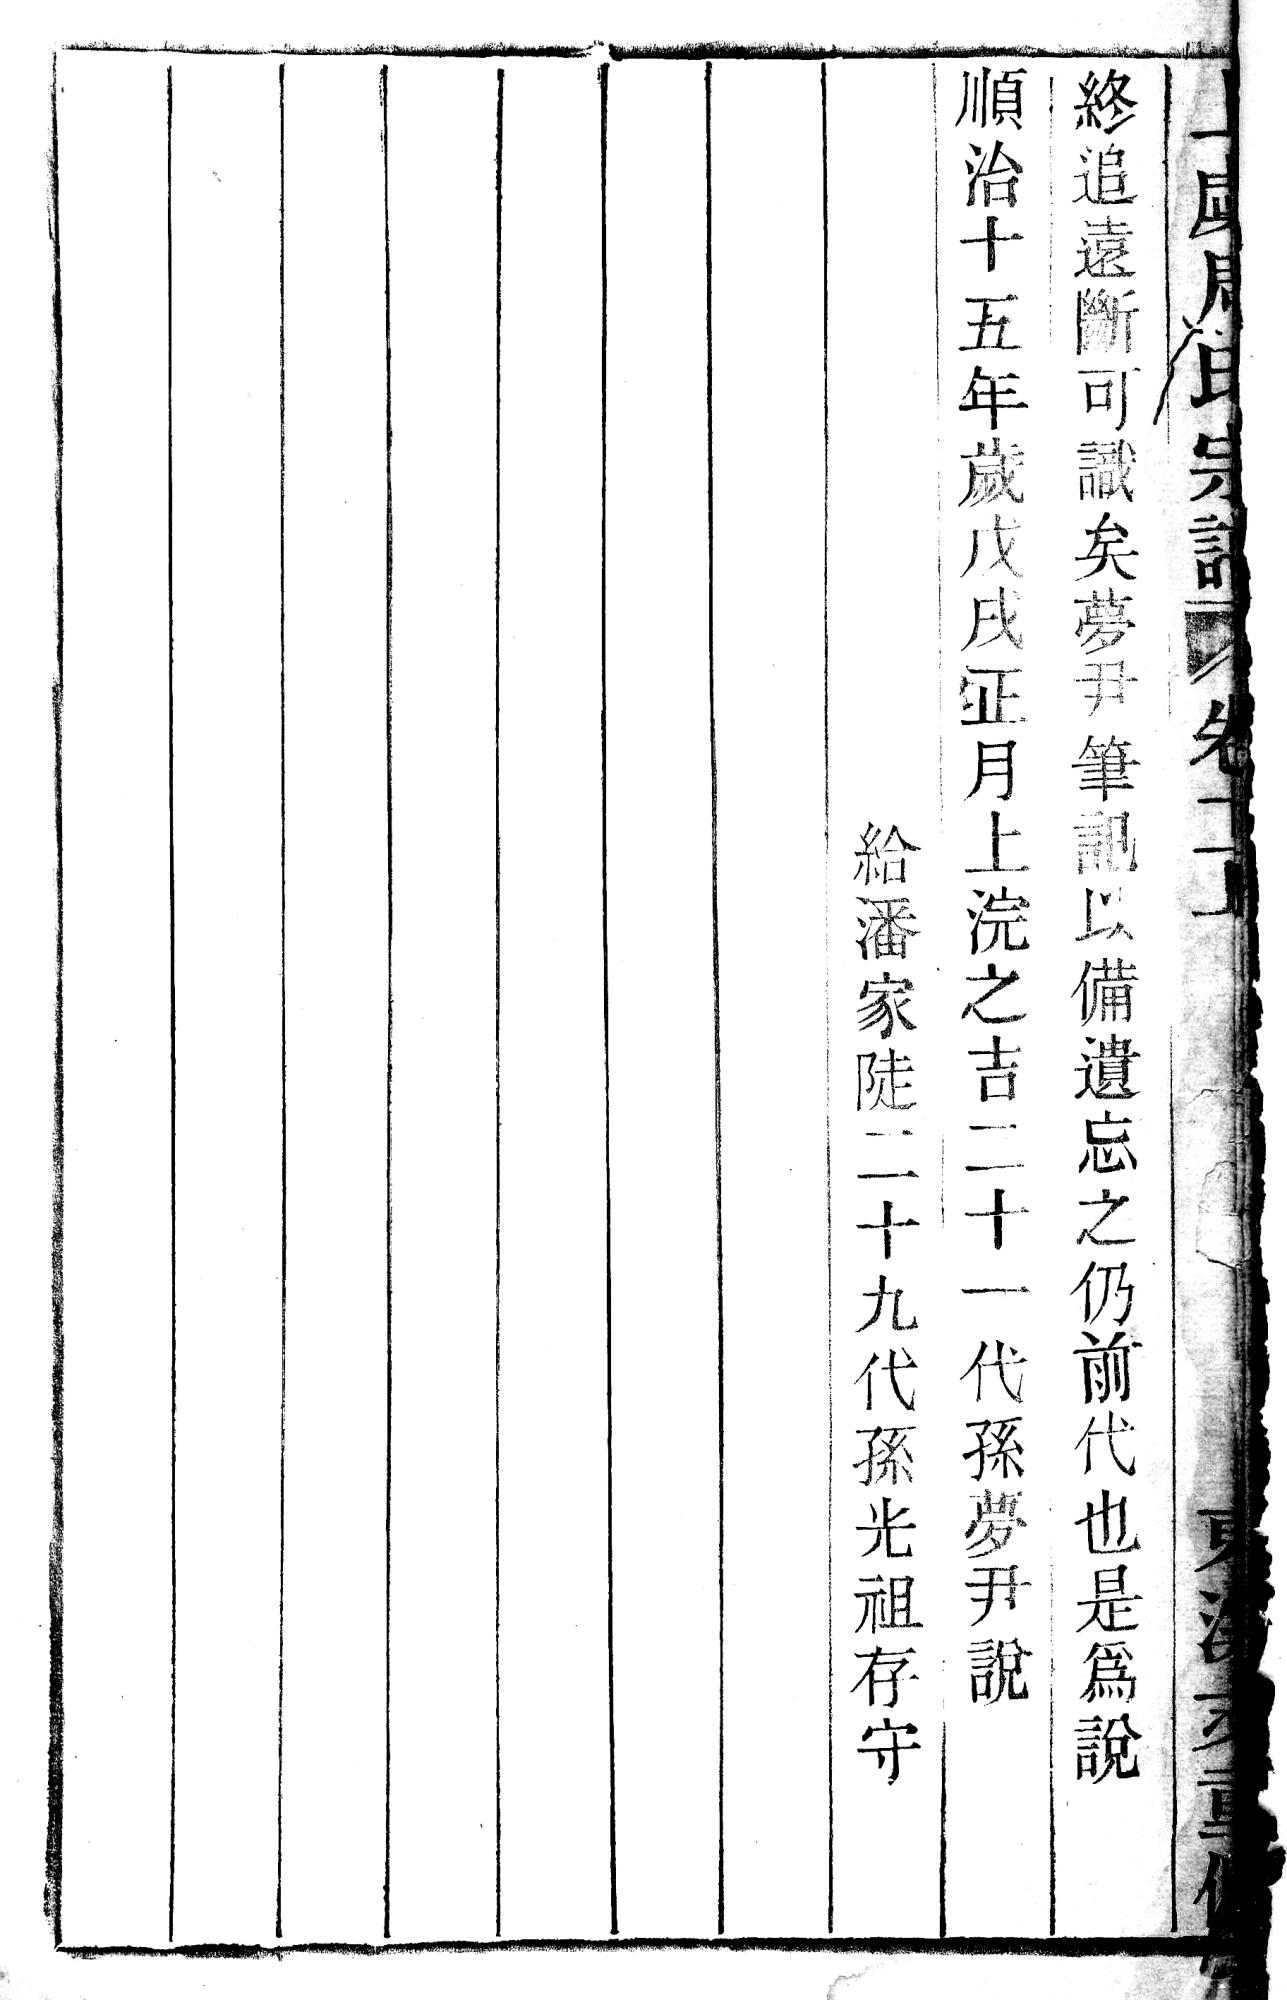 氏宗譜 卷十五
終追遠斷可識矣夢尹筆記以備遺忘之仍前代也是爲說
順治十五年歲戊戌正月上浣之吉二十一代孫夢尹說
給潘家陡二十九代孫光祖存守